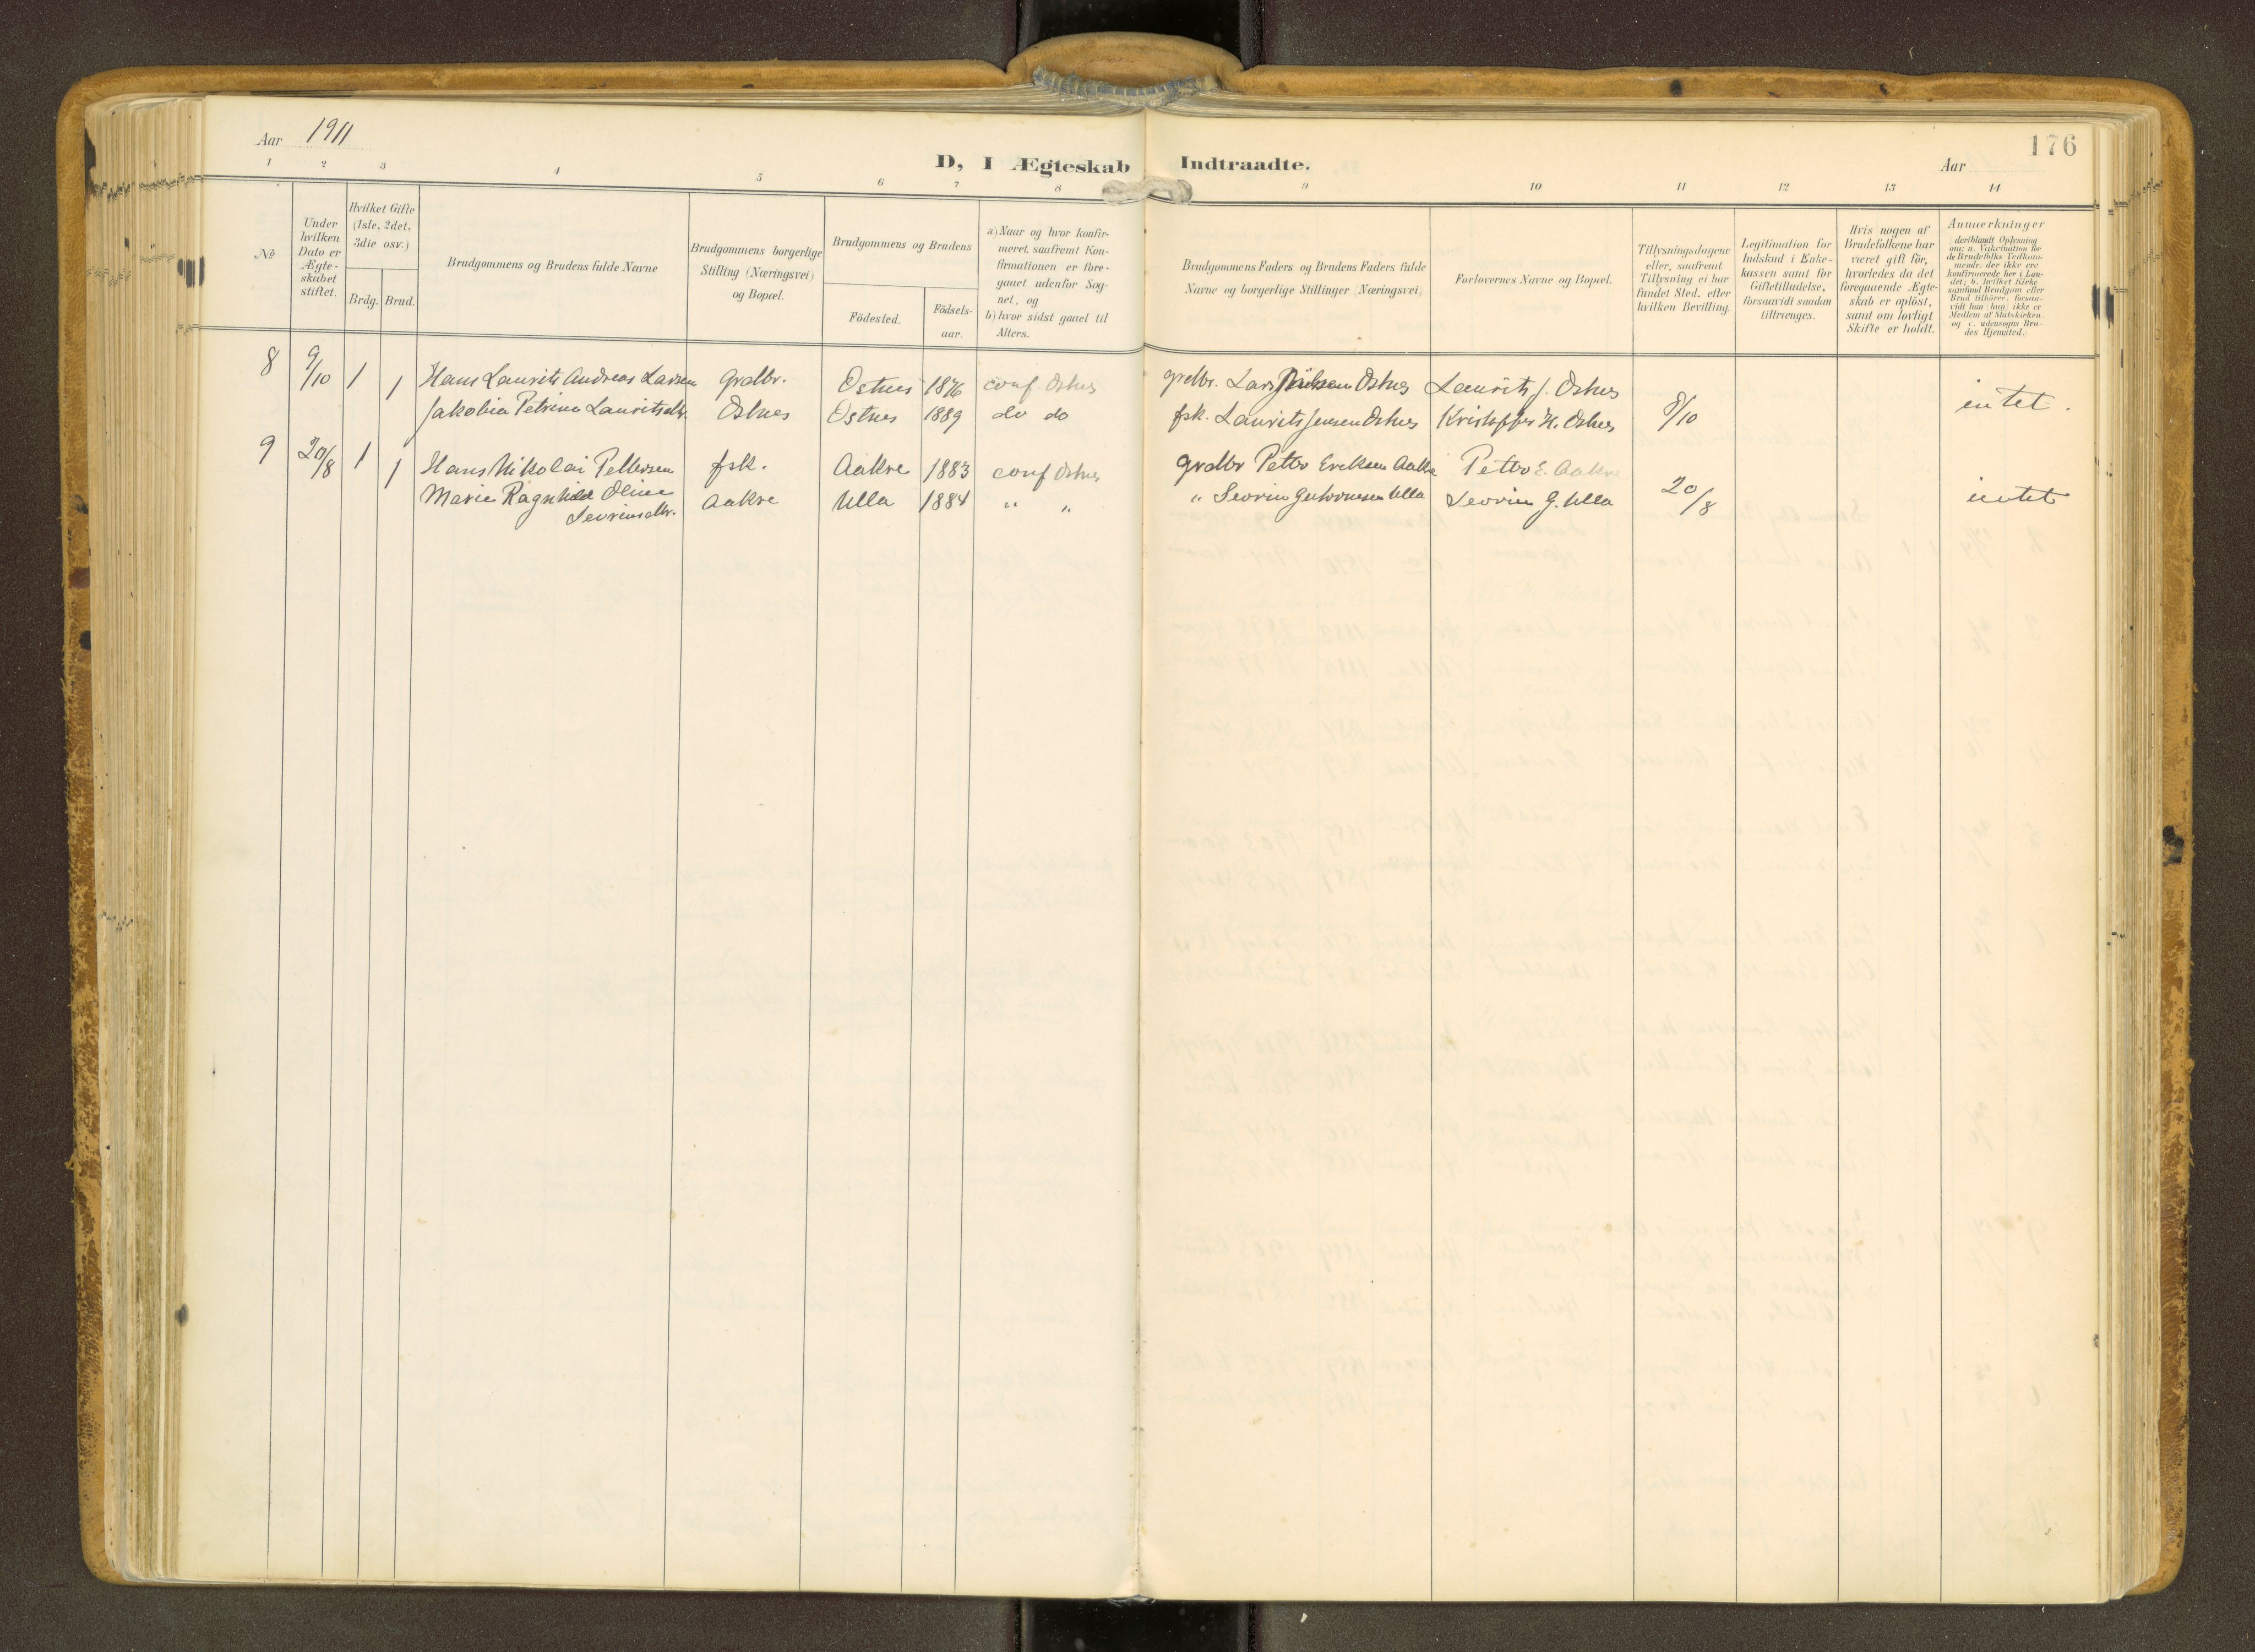 Aar 1911
D, I Ægteskab Indtraadte.
Aar
176
1 2 3 4 5 6 7 8 9 10 11 12 13 14
No
Under hvilken Dato er Ægteskabet stiftet.
Hvilket Gifte (1ste, 2det, 3die osv.)
Brdg. Brud.
Brudgommens og Brudens fulde Navne
Brudgommens borgerlige Stilling (Næringsvei) og Bopæl.
Brudgommens og Brudens
Födested.
Födsels-aar.
a) Naar og hvor konfirmeret, saafremt Konfirmationen er foregaaet udenfor Sognet, og
b) hvor sidst gaaet til Alters.
Brudgommens Faders og Brudens Faders fulde Navne og borgerlige Stillinger (Næringsvei)
Forlovernes Navne og Bopæl.
Tillysningsdagene eller, saafremt Tillysning ei har fundet Sted, efter hvilken Bevilling.
Legitimation for Indskud i Enkekassen samt for Giftetilladelse, forsaavidt saadan tiltrænges.
Hvis nogen af Brudefolkene har været gift för, hvorledes da det foregaaende Ægteskab er oplöst, samt om lovligt Skifte er holdt.
Anmærkninger
deriblandt Oplysning om: a. Vakcination for de Brudefolks Vedkommende, der ikke ere konfirmerede her i Landet; b. hvilket Kirkesamfund Brudgom eller Brud tilhörer, forsaavidt han/hun ikke er Medlem af Statskirken, og c. udensogns Brudes Hjemsted.
8 9/10 1 Hans Laurits Andreas Larsen grdbr. Ostnes 1876 conf Ostnes grdbr. Lars Ostnes Laurits J. Ostnes
1 Jakobia Petrine Lauritsdtr. Ostnes Ostnes 1889 do do fsk. Laurits Jensen Ostnes Kristoffer H. Ostnes 8/10 intet.
9 20/8 1 Hans Nikolai Pettersen fsk. Aakre 1883 conf Ostnes grdbr Petter Eriksen Aakre Petter E. Aakre
1 Marie Ragnhild Oline Aakre Ulla 1884 " " " Sevrin Ulla Sevrin G. Ulla 20/8 intet
Sevrinsdtr.